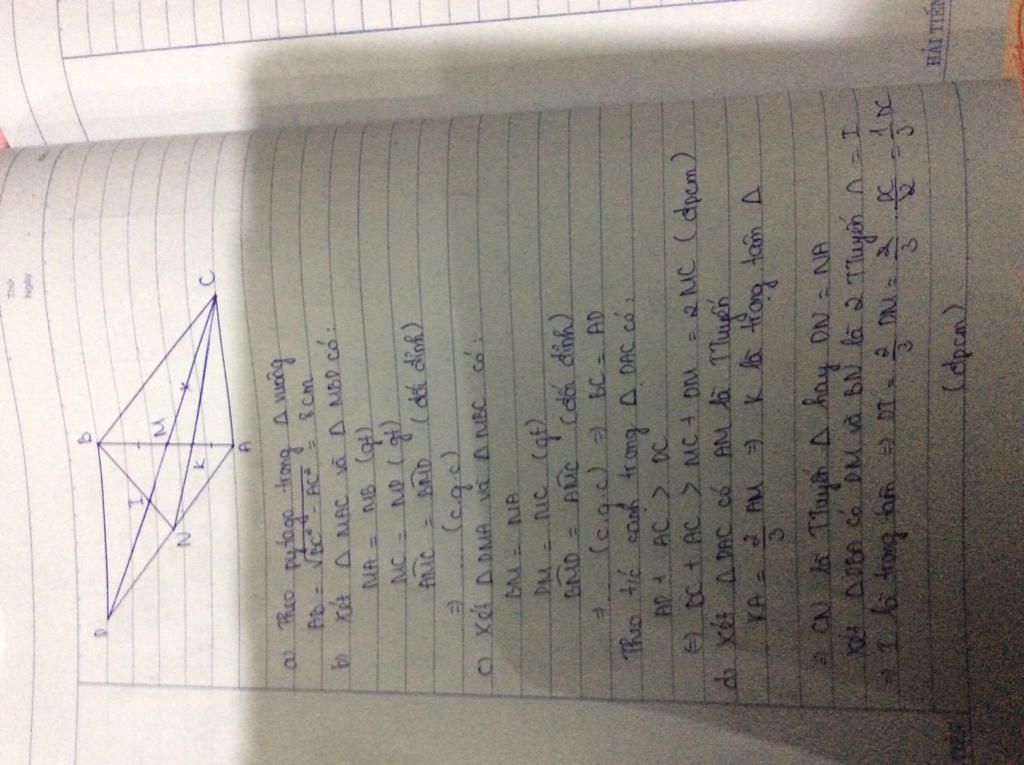 Thứ
Ngày
D
B
C
I
M
N
K
A
a) Theo pytago trong Δ vuông
AB = √BC² - AC² = 8cm
b) Xét Δ MAC và Δ MBD có:
MA = MB (gt)
MC = MD (gt)
AMC = BMD (đối đỉnh)
⇒ (c.g.c)
c) Xét Δ DMA và Δ MBC có:
BM = MA
DM = MC (gt)
BMD = AMC (đối đỉnh)
⇒ (c.g.c) ⇒ BC = AD
Theo t/c cạnh trong Δ DAC có:
AD + AC > DC
⇔ BC + AC > MC + DM = 2MC (đpcm)
d) Xét Δ DAC có AM là TTuyến
KA = 2/3 AM ⇒ K là trọng tâm Δ
⇒ CN là TTuyến Δ hay DN = NA
Xét Δ DBA có DM và BN là 2 TTuyến ∩ = I
⇒ I là trọng tâm ⇒ DI = 2/3 DM = 2/3 . DC/2 = 1/3 DC
(đpcm)
HẢI TIẾN